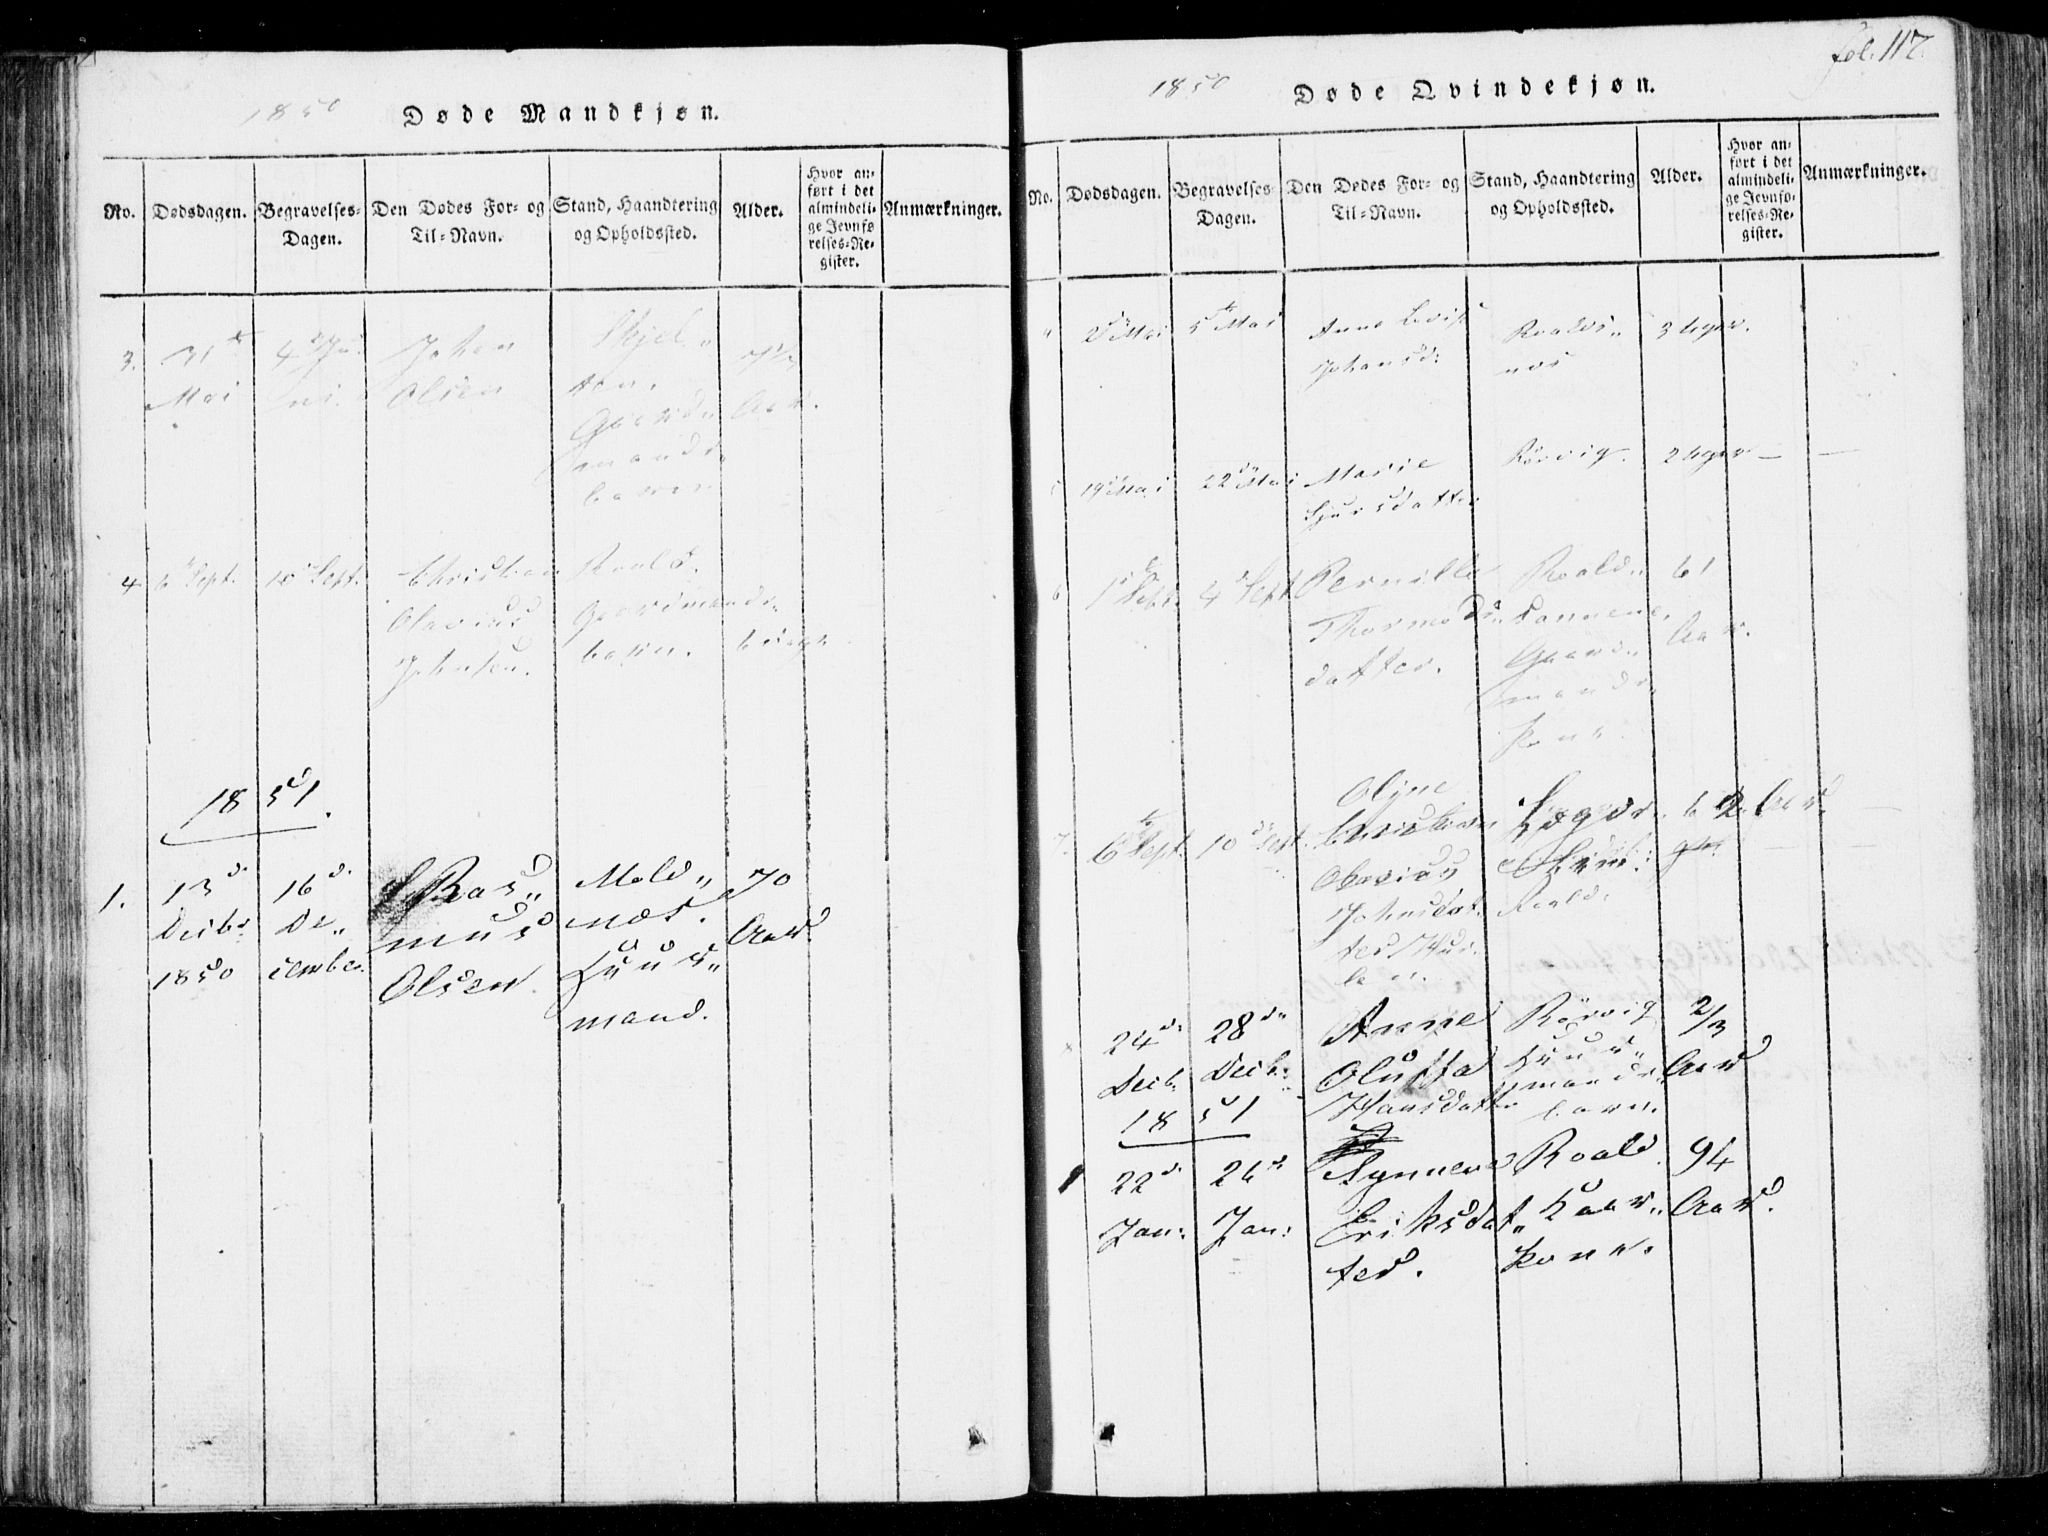 1850
Døde Mandkjøn.
No.
Dødsdagen.
Begravelses-
Dagen.
Den Dødes For- og
Til-Navn.
Stand, Haandtering
og Opholdssted.
Alder.
Hvor an-
ført i det
almindeli-
ge Jevnfø
relses-Re-
gister.
Anmærkninger.
3.
31
Mai
4 Ju-
ni.
Johan
Olsen
Skjel„
ten.
Gaard„
mands„
barn
Aar.
4
6 Sept.
10 Sept.
Christian
Olavius
Johnsen.
Roald.
Gaardmands„
barn.
6 Dage
1851.
1.
13d
Decbr
1850
16d
De„
cember.
Ras„
mus
Olsen.
Mold„
næs.
Huus„
mand.
70
Aar.
fol. 117.
1850
Døde Qvindekjøn.
No.
Dødsdagen.
Begravelses-
Dagen.
Den Dødes For- og
Til-Navn.
Stand, Haandtering
og Opholdssted.
Alder.
Hvor an-
ført i det
almindeli-
ge Jevnfø-
relses-Re-
gister.
Anmærkninger.
2 Mai
5 Mai
Anne
Johansd:
Roalds„
næs
3 Uger.
5
19 Mai
22 Mai
Marie
Sjursdatter
Rörvig.
2 Uger
6
1 Sept.
4 Sept
Pernille
Thormods„
datter.
Roald„
Gaard„
mands„
kone
61
Aar.
7.
6 Sept.
10 Sept.
Oline
Christian
Olavius
Johnsdat„
ter
Roald.
2 Aar
24d
Decb.
28d
Decb:
Anne
Oluffa
Hansdatter
Rörvig
Huus„
mands„
barn.
2/3
Aar
1851
22d
Jan:
26d
Jan:
Synneve
Eriksdat„
ter.
Roald.
Kaar„
kone.
94
Aar.